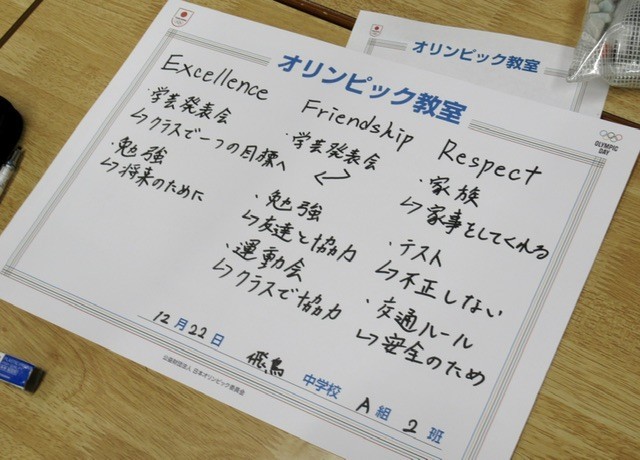 オリンピック教室
オリンピック教室
OLYMPIC
DAY
Excellence
・学芸発表会
↳クラスで一つの目標へ
・勉強
↳将来のために
Friendship
・学芸発表会
・勉強
↳友達と協力
・運動会
↳クラスで協力
Respect
・家族
↳家事をしてくれる
・テスト
↳不正しない
・交通ルール
↳安全のため
12月22日 飛鳥 中学校 A組 2班
公益財団法人 日本オリンピック委員会